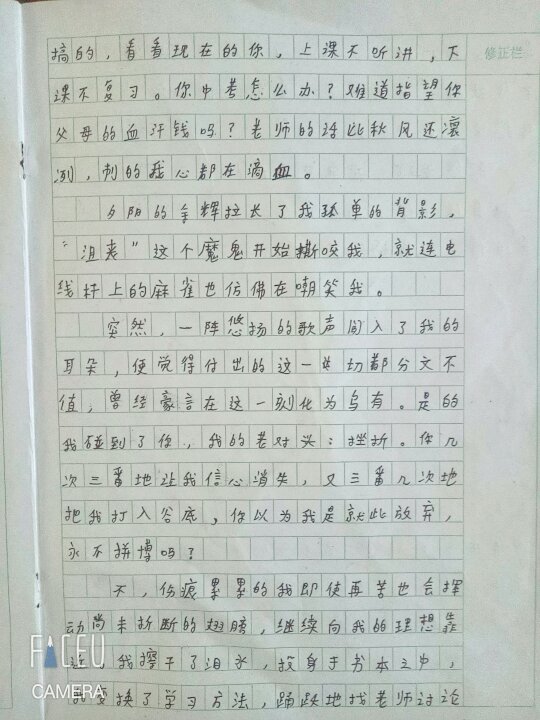 修正栏
搞的，看看现在的你，上课不听讲，下
课不复习。你中考怎么办？难道指望你
父母的血汗钱吗？老师的话此秋风还凛
冽，刺的我心都在滴血。
夕阳的余辉拉长了我孤单的背影，
"沮丧"这个魔鬼开始撕咬我，就连电
线杆上的麻雀也仿佛在嘲笑我。
突然，一阵悠扬的歌声闯入了我的
耳朵，使觉得付出的这一切都分文不
值；曾经豪言在这一刻化为乌有。是的
我碰到了你，我的老对头：挫折。你几
次三番地让我信心消失，又三番几次地
把我打入谷底，你以为我是就此放弃，
永不拼搏吗？
不，伤痕累累的我即使再苦也会挥
动尚未折断的翅膀，继续向我的理想靠
近，我擦干了泪水，投身于书本之中，
我变换了学习方法，踊跃地找老师讨论
FACEU
CAMERA